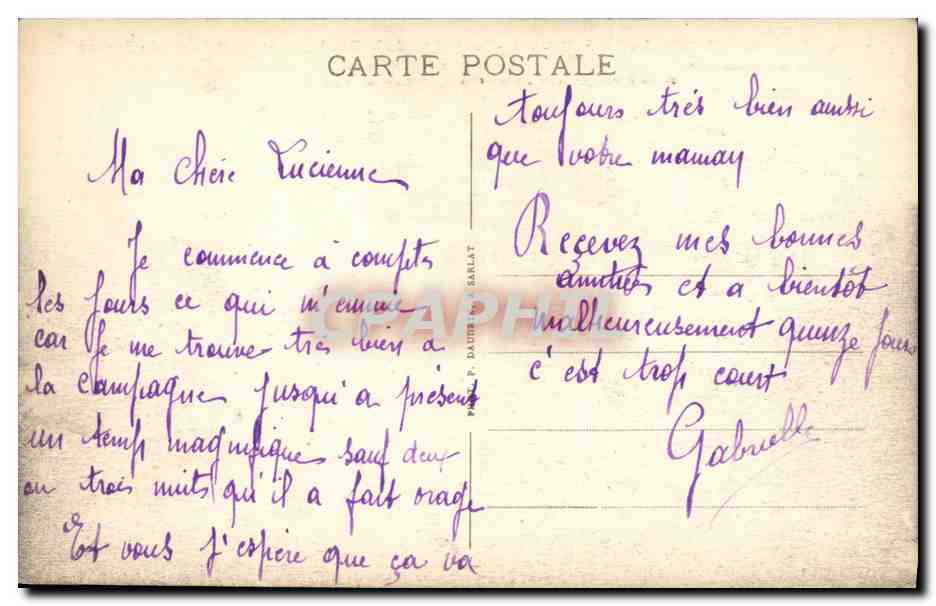 CARTE POSTALE
Ma chère Lucienne
Je commence à compter
les jours ce qui m'ennuie
car je me trouve très bien a
la campagne jusqu'i a présent
un temps magnifique sauf deux
ou trois nuits qu'il a fait orage
Et vous j'espère que ça va
PHOT. P. DAUDRIX, A SARLAT
toujours très bien aussi
que votre maman
Recevez mes bonnes
amitiés et a bientôt
malheureusement quinze jours
c'est trop court
Gabrielle
CPAPHIL